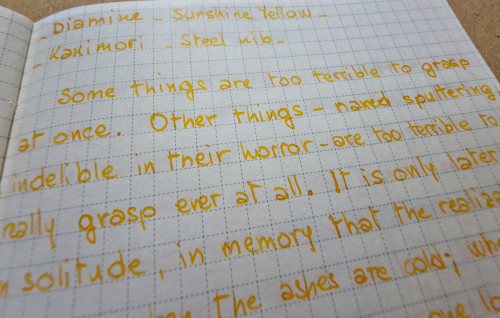 - Diamine - Sunshine Yellow -
- Kakimori - Steel nib -
Some things are too terrible to grasp
at once. Other things - naked sputtering
indelible in their horror - are too terrible to
really grasp ever at all. It is only later
in solitude, in memory that the
the ashes are cold;